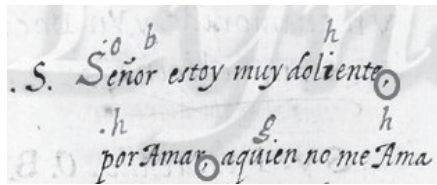 .o b h
. S. Señor estoy muy doliente,
.h g h
por Amar, aquien no me Ama